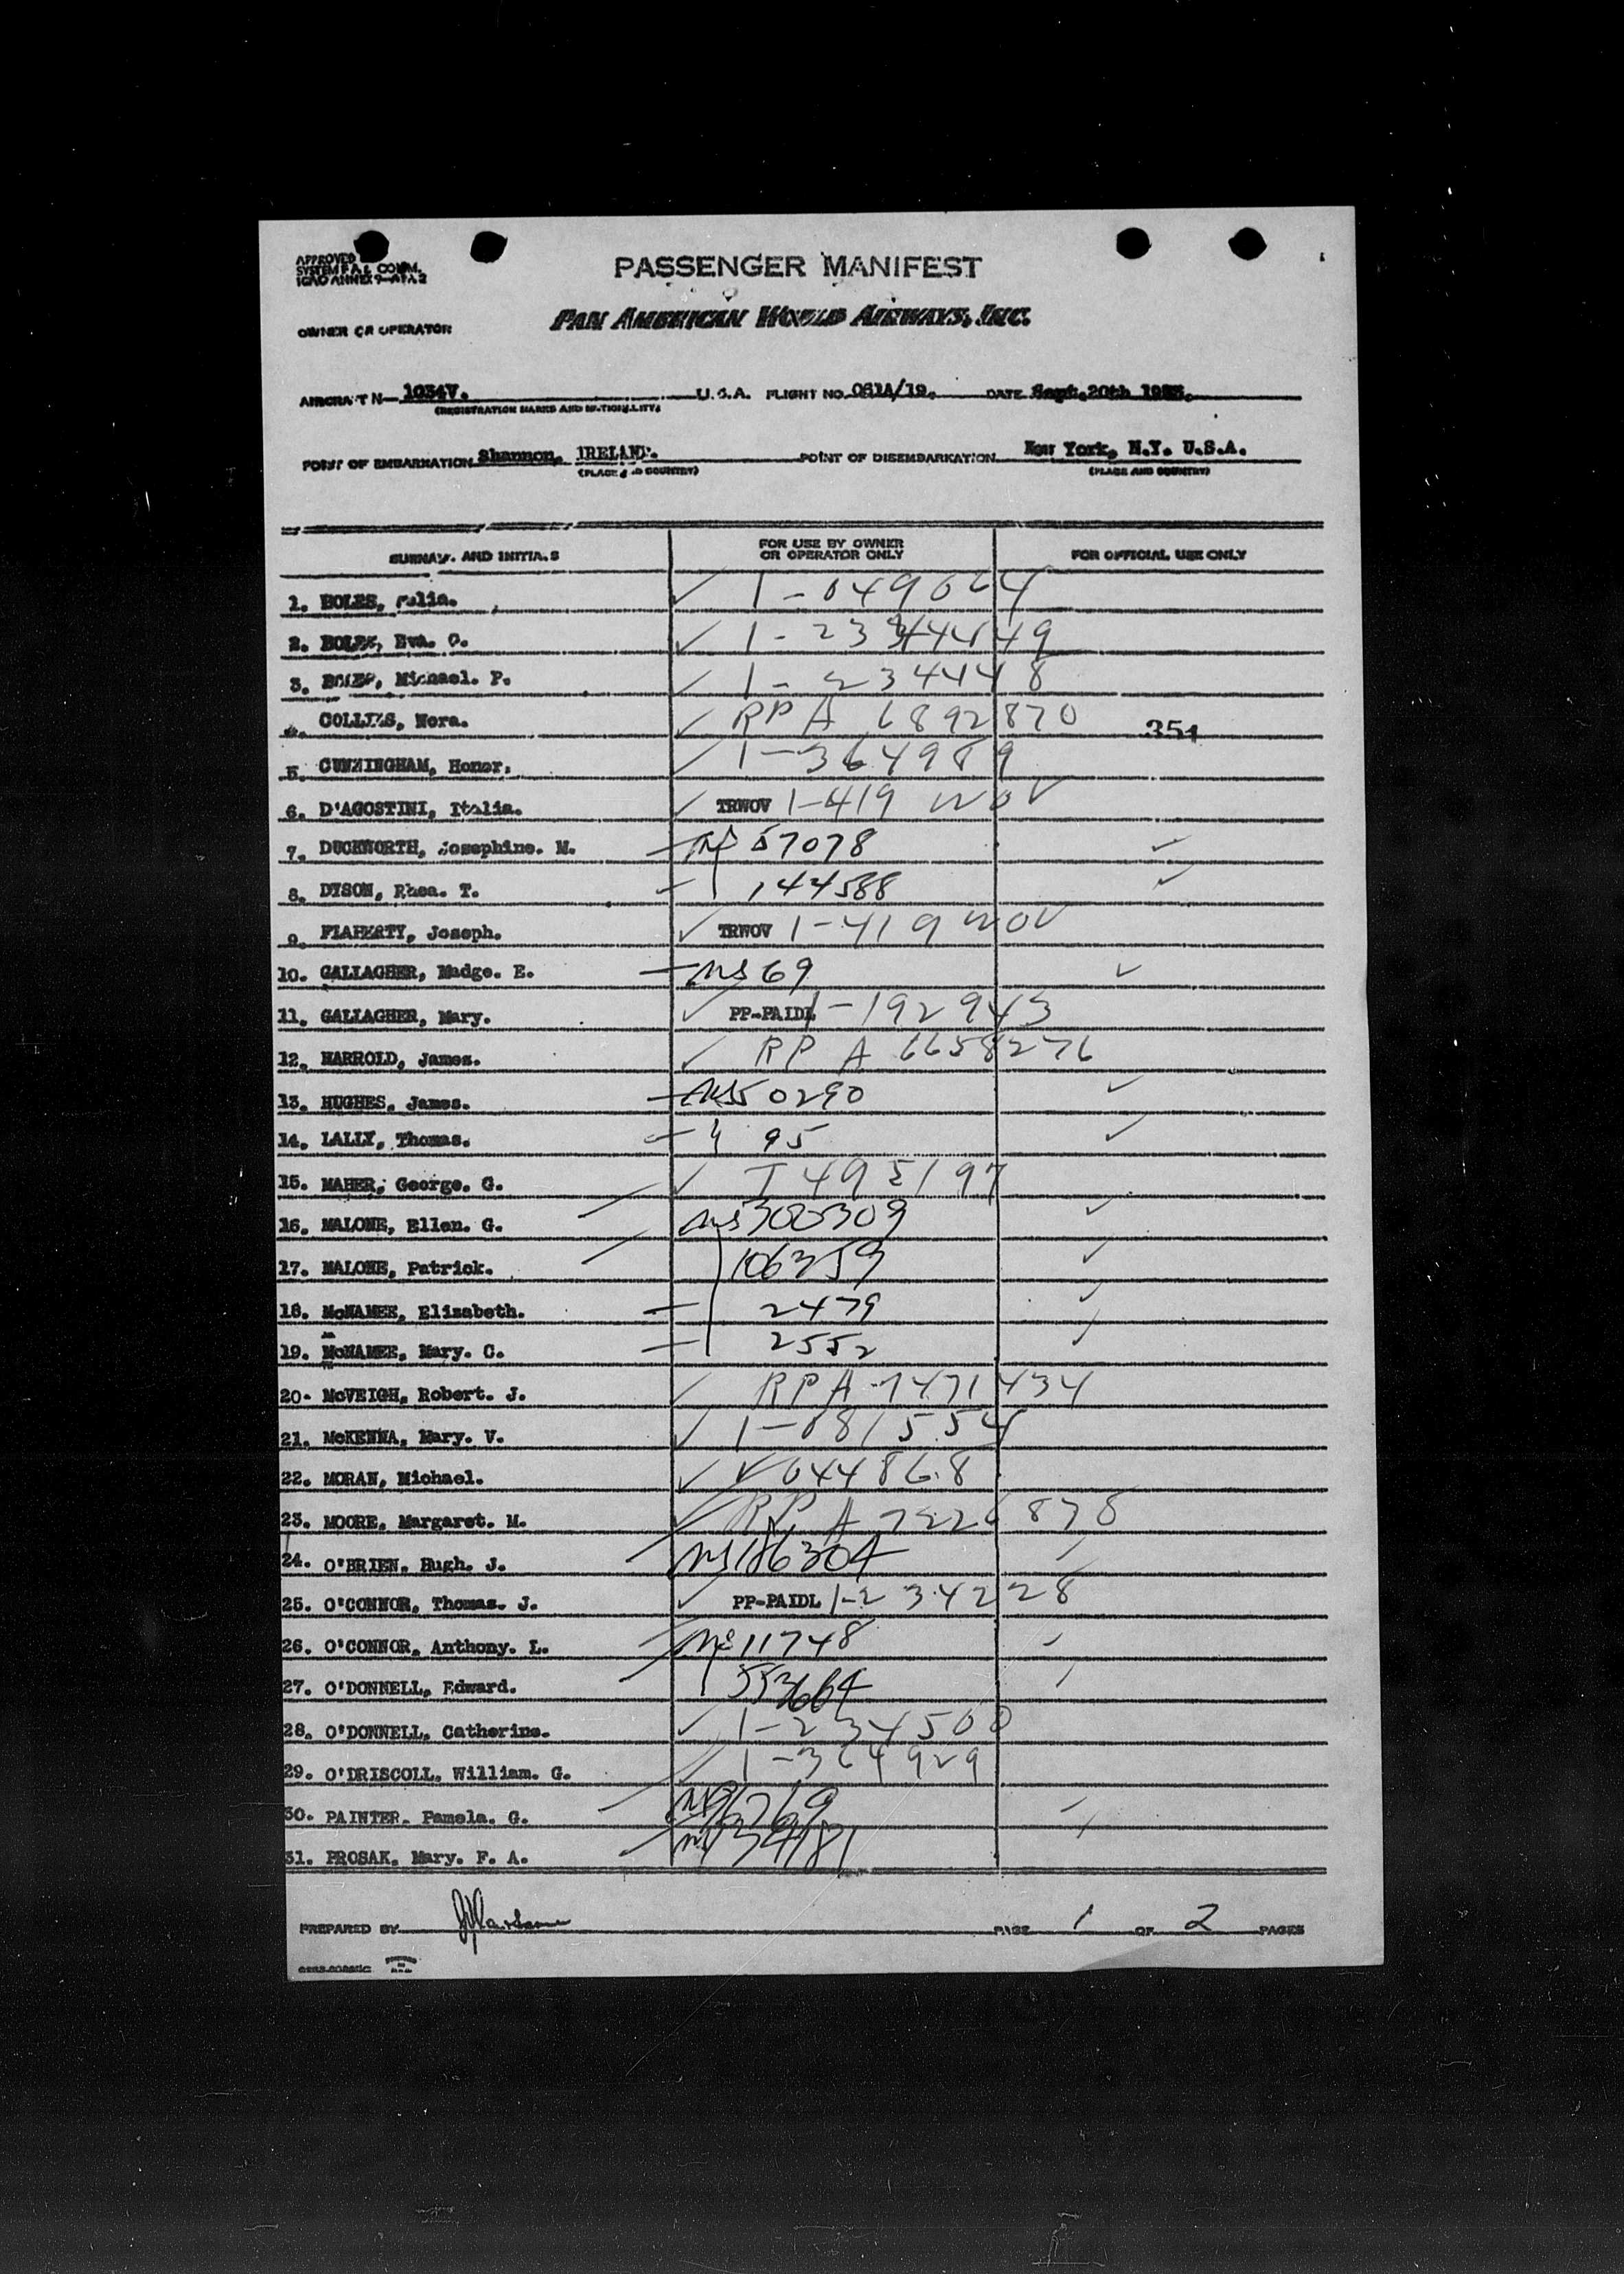 APPROVED
SYSTEM F.A.L COMM.
ICAO ANNEX 9—APA 2
PASSENGER MANIFEST
OWNER OR OPERATOR
PAN AMERICAN WORLD AIRWAYS, INC.
AIRCRAFT N— 1034V. U.S.A. FLIGHT NO. 061A/19. DATE Sept.20th
(REGISTRATION MARKS AND NATIONALITY)
POINT OF EMBARKATION Shannon, IRELAND. POINT OF DISEMBARKATION New York, N.Y. U.S.A.
(PLACE AND COUNTRY) (PLACE AND COUNTRY)
SURNAME AND INITIALS FOR USE BY OWNER OR OPERATOR ONLY FOR OFFICIAL USE ONLY
1. BOLES, 1-049064
2. Eva. O.
3. Michael. P. 1-234448
4. COLLINS, Nora. RP A 6892870 351
5. CUNNINGHAM, Honor. 1-364989
6. D'AGOSTINI, Italia. TRWOV 1-419 WOV
7. DUCKWORTH, Josephine. M. 57078
8. DYSON, Rhea. T. 144588
9. FLAHERTY, Joseph. TRWOV 1-419 WOV
10. GALLAGHER, Madge. E. 69
11. GALLAGHER, Mary. PP-PAIDL 1-192943
12. HARROLD, James. RP A 6658276
13. HUGHES, James. 50290
14. LALLY, Thomas. 95
15. MAHER, George. G. T 495197
16. MALONE, Ellen. G.
17. MALONE, Patrick. 106359
18. McNAMEE, Elizabeth. 2479
19. McNAMEE, Mary. C. 2552
20. McVEIGH, Robert. J. RP A 7471434
21. McKENNA, Mary. V. 1-081554
22. MORAN, Michael. V 044868
23. MOORE, Margaret. M. RP A 7226878
24. O'BRIEN, Hugh. J. 186304
25. O'CONNOR, Thomas. J. PP-PAIDL 1-234228
26. O'CONNOR, Anthony. L. 11748
27. O'DONNELL, Edward.
28. O'DONNELL, Catherine. 1-234500
29. O'DRISCOLL, William. G. 1-364929
30. PAINTER. Pamela. G.
31. PROSAK, Mary. F. A. 34181
PREPARED BY PAGE 1 OF 2 PAGES